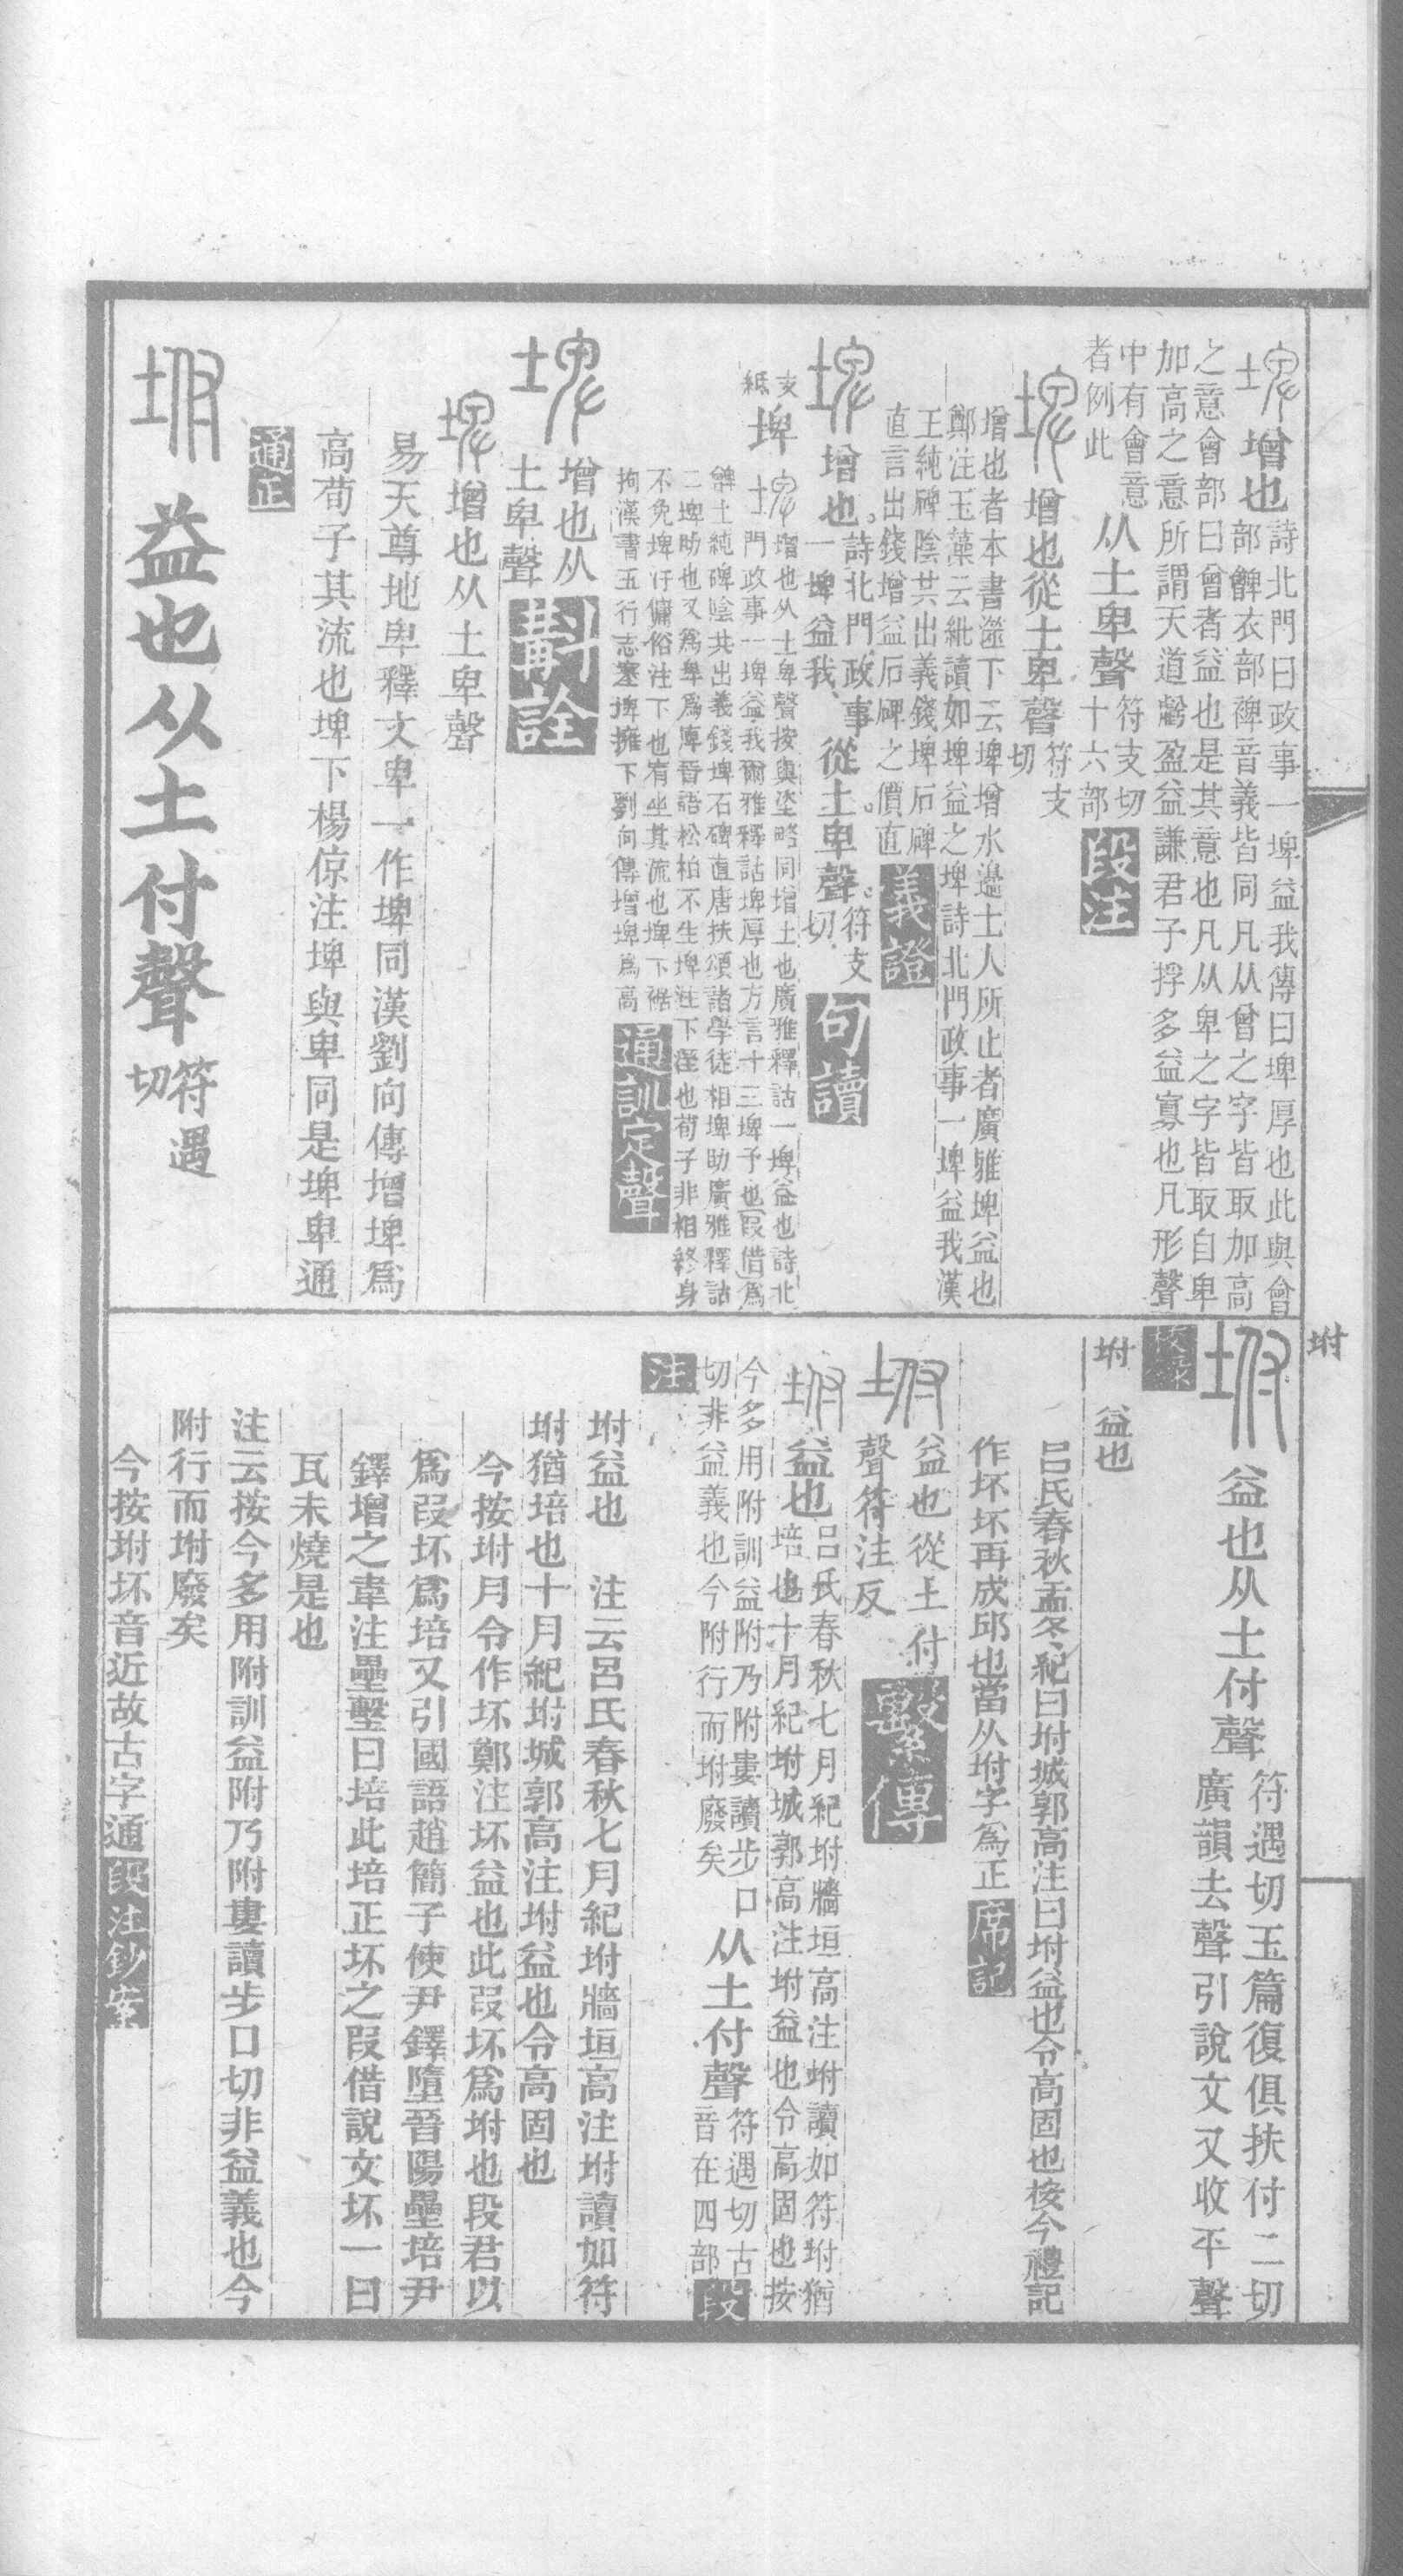 埤增也
詩北門曰政事一埤益我傳曰埤厚也此與會
部䯗衣部裨音義皆同凡从曾之字皆取加高
之意會部曰曾者益也是其意也凡从卑之字皆取自卑
加高之意所謂天道虧盈益謙君子捊多益寡也凡形聲
中有會意
者例此
从土卑聲
符支切
十六部
段注
埤增也從土卑聲
符支
切
增也者本書澨下云埤增水邊土人所止者廣雅埤益也
鄭注玉藻云紕讀如埤益之埤詩北門政事一埤益我漢
王純碑陰共出義錢埤石碑
直言出錢增益石碑之價直
義證
埤增也
詩北門政事
一埤益我
從土卑聲
符支
切
句讀
支
紙
埤
埤增也从土卑聲按與坴略同增土也廣雅釋詁一埤益也詩北
門政事一埤益我爾雅釋詁埤厚也方言十三埤予也叚借爲
髀土純碑陰共出義錢埤石碑直唐扶頌諸學徒相埤助廣雅釋詁
二埤助也又爲卑爲庳晉語松柏不生埤注下溼也荀子非相終身
不免埤汙傭俗注下也宥坐其流也埤下裾
拘漢書五行志塞埤擁下劉向傳增埤爲高
通訓定聲
埤
增也从
土卑聲
斠詮
埤增也从土卑聲
易天尊地卑釋文卑一作埤同漢劉向傳增埤爲
高荀子其流也埤下楊倞注埤與卑同是埤卑通
通正
坿益也从土付聲
符遇
切
坿
坿益也从土付聲
符遇切玉篇復俱扶付二切
廣韻去聲引說文又收平聲
校錄
坿 益也
呂氏春秋孟冬紀曰坿城郭高注曰坿益也令高固也桉今禮記
作坏坏再成邱也當从坿字爲正
席記
坿
益也從土付
聲符注反
繫傳
坿益也
呂氏春秋七月紀坿牆垣高注坿讀如符坿猶
培也十月紀坿城郭高注坿益也令高固也按
今多用附訓益附乃附婁讀步口
切非益義也今附行而坿廢矣
从土付聲
符遇切古
音在四部
段
注
坿益也 注云呂氏春秋七月紀坿牆垣高注坿讀如符
坿猶培也十月紀坿城郭高注坿益也令高固也
今按坿月令作坏鄭注坏益也此叚坏爲坿也段君以
爲叚坏爲培又引國語趙簡子使尹鐸墮晉陽壘培尹
鐸增之韋注壘墼曰培此培正坏之叚借說文坏一曰
瓦未燒是也
注云按今多用附訓益附乃附婁讀步口切非益義也今
附行而坿廢矣
今按坿坏音近故古字通
段注鈔案